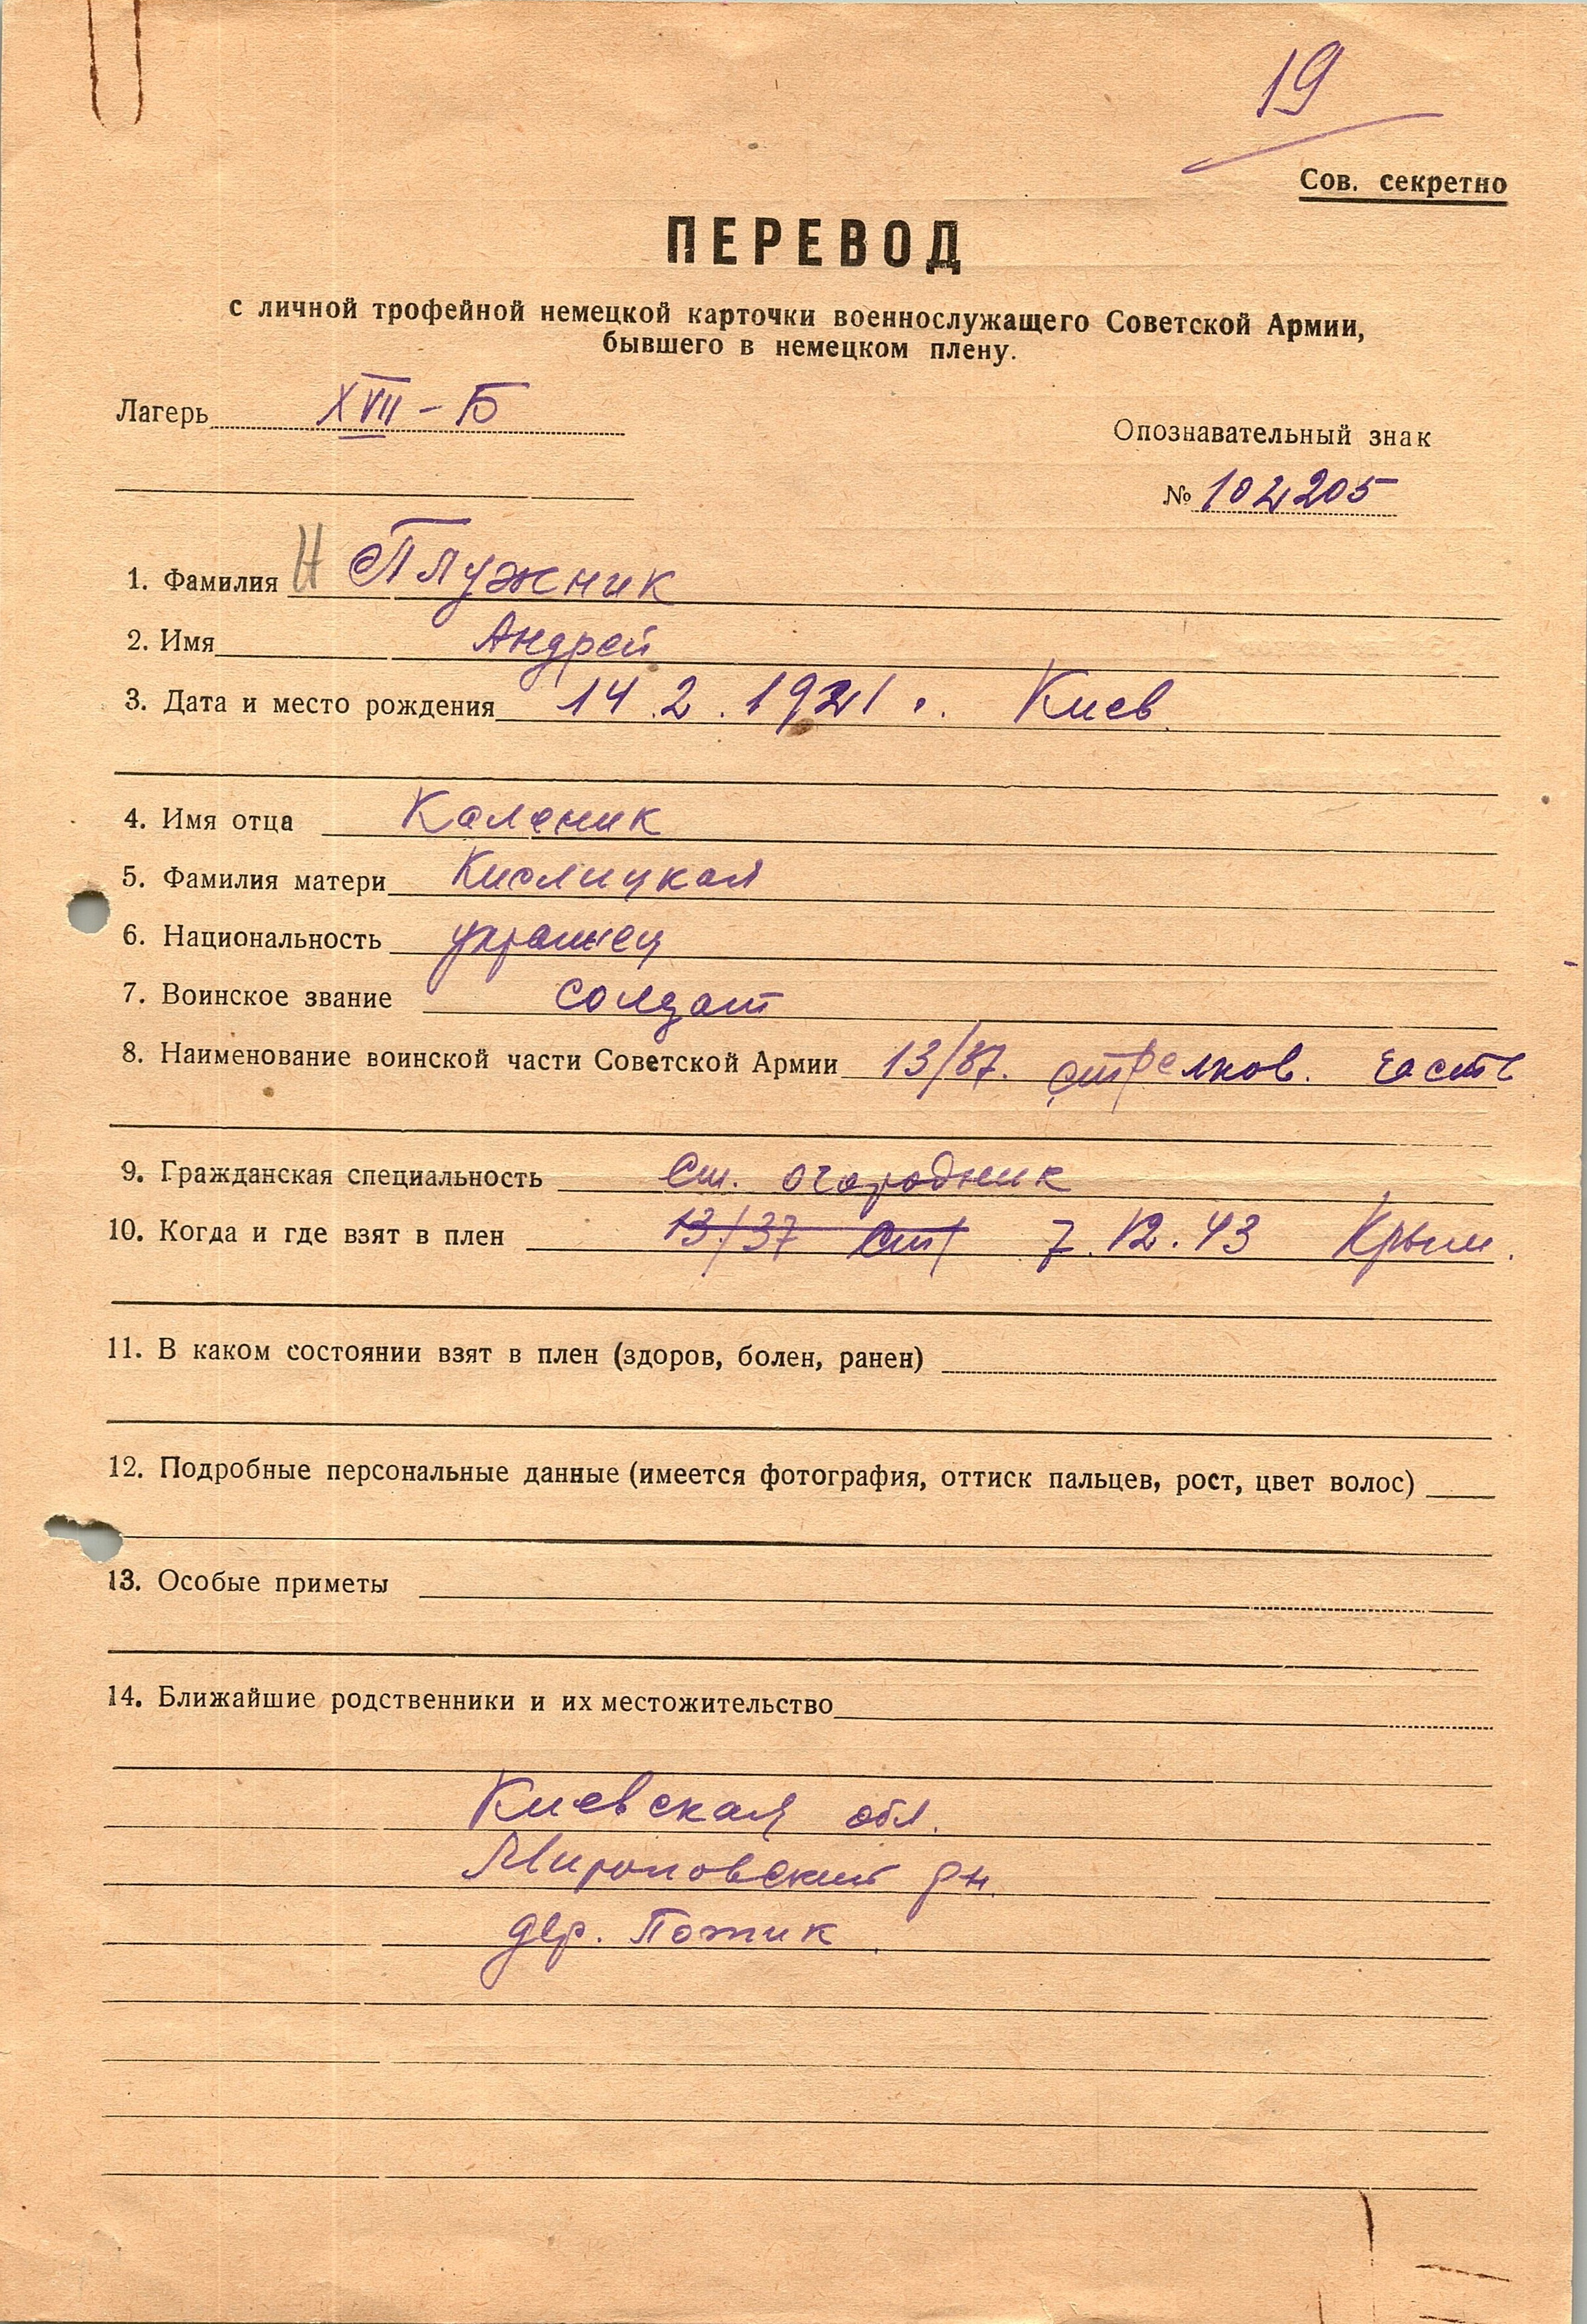 19
Сов. секретно
ПЕРЕВОД
с личной трофейной немецкой карточки военнослужащего Советской Армии,
бывшего в немецком плену.
Лагерь XVII – Б
Опознавательный знак
№ 102205
1. Фамилия Н Плужник
2. Имя Андрей
3. Дата и место рождения 14.2.1921 г. Киев
4. Имя отца Каленик
5. Фамилия матери Кислицкая
6. Национальность украинец
7. Воинское звание солдат
8. Наименование воинской части Советской Армии 13/37. стрелков. часть
9. Гражданская специальность См. огородник
10. Когда и где взят в плен 13/37 ст 7.12.43 Крым.
11. В каком состоянии взят в плен (здоров, болен, ранен)
12. Подробные персональные данные (имеется фотография, оттиск пальцев, рост, цвет волос)
13. Особые приметы
14. Ближайшие родственники и их местожительство
Киевская обл.
Мироновский рн.
дер. Потик